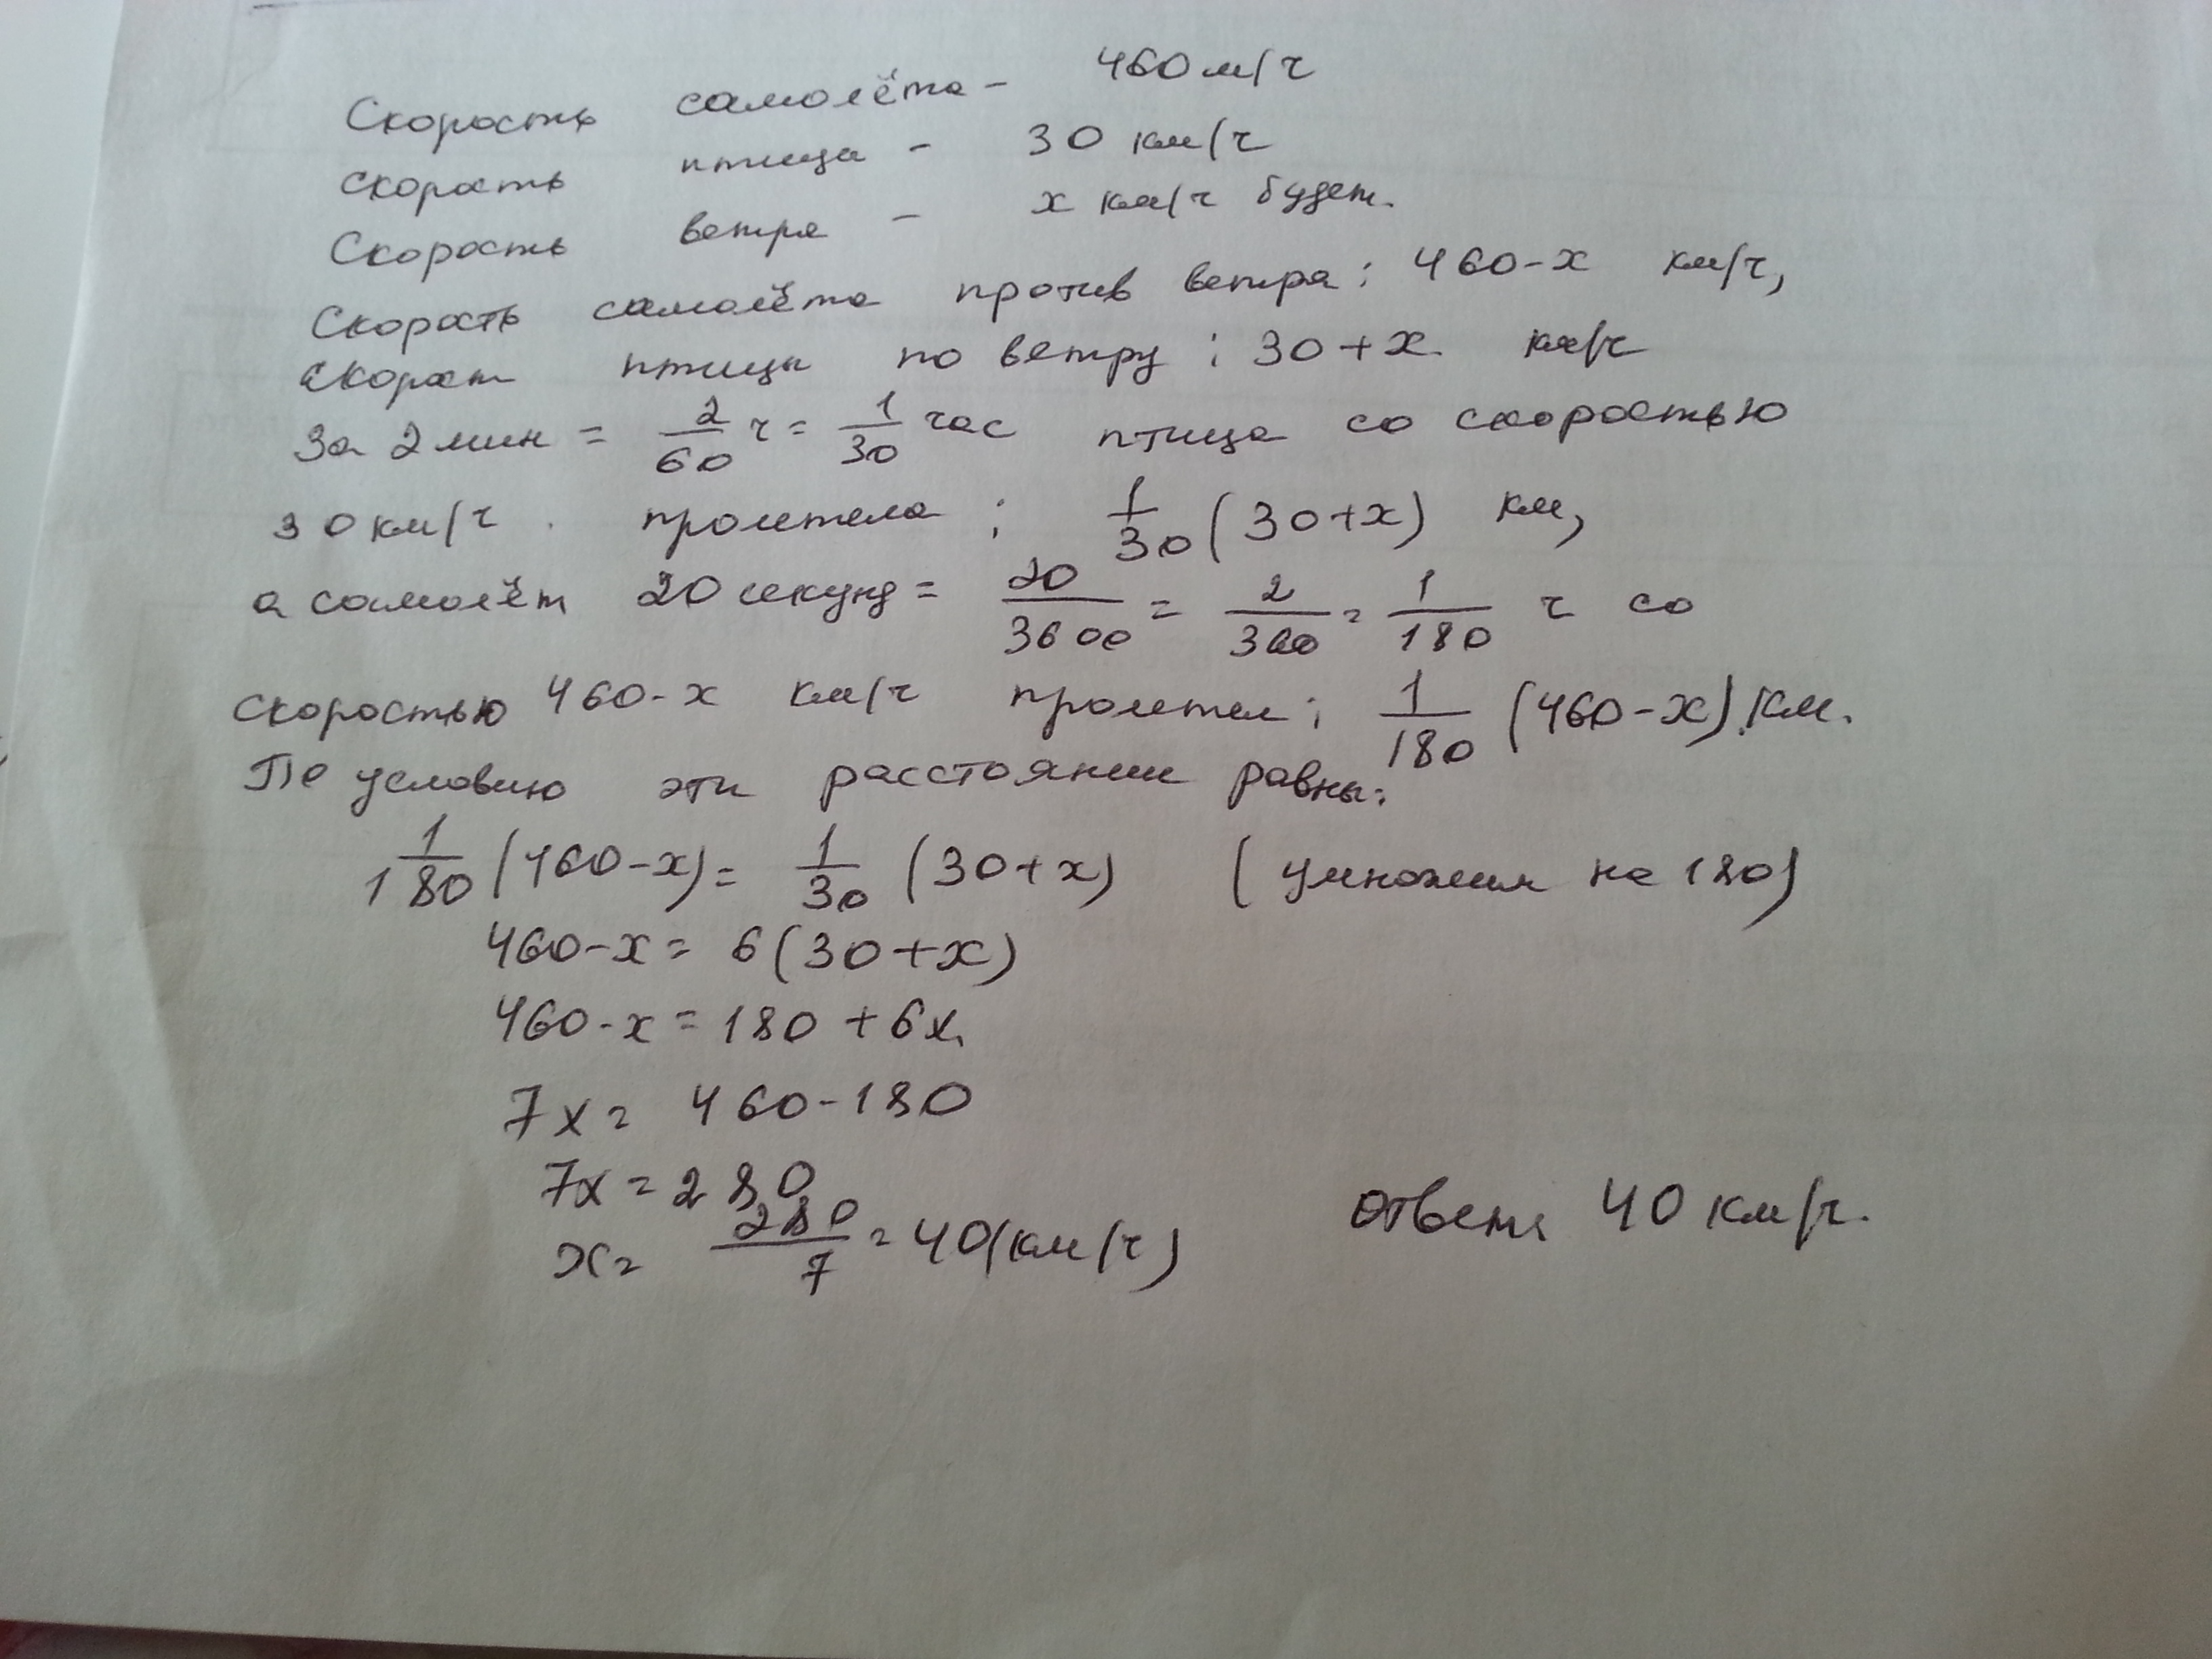 Скорость самолёта - 460 м/ч
Скорость птица - 30 км/ч
Скорость ветра - x км/ч будет.
Скорость самолёта против ветра: 460-x км/ч,
Скорост птицы по ветру: 30+x км/ч
За 2 мин = 2/60 ч = 1/30 час птица со скоростью
30 км/ч. пролетела: 1/30 (30+x) км,
а самолёт 20 секунд = 20/3600 = 2/360 = 1/180 ч со
скоростью 460-x км/ч пролетел: 1/180 (460-x) км.
По условию эти расстояние равны:
1/180 (460-x) = 1/30 (30+x) (умножим на 180)
460-x = 6(30+x)
460-x = 180+6x
7x = 460-180
7x = 280
x = 280/7 = 40 (км/ч) Ответ: 40 км/ч.